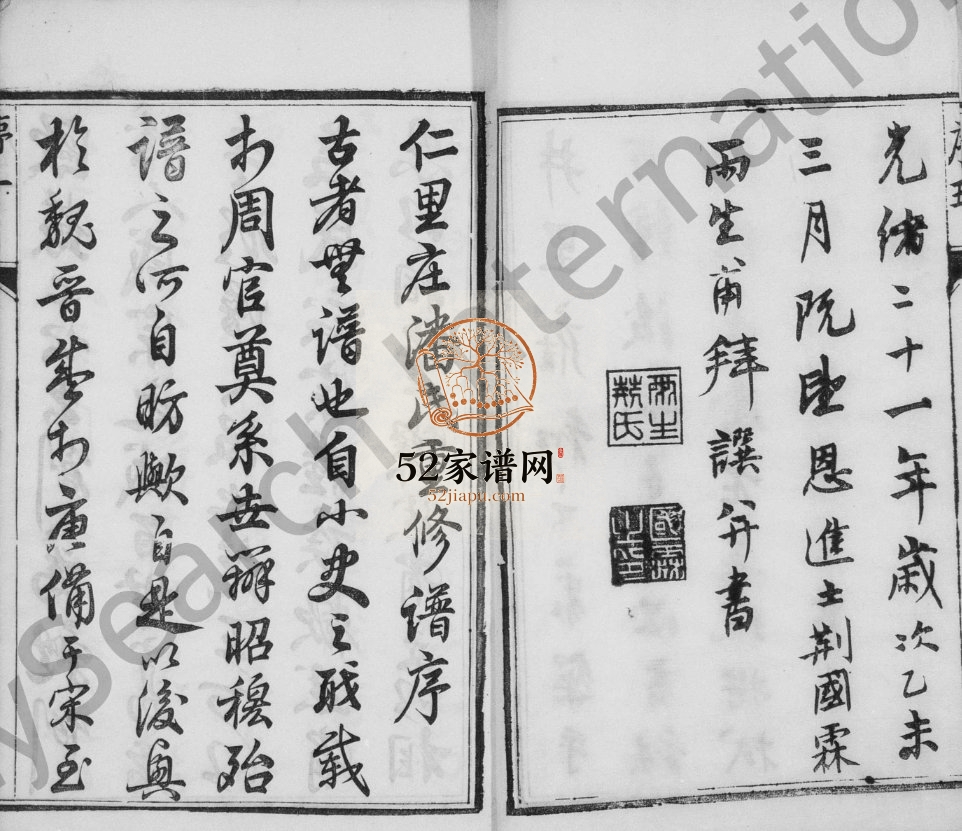 光緒二十一年歲次乙未
三月既望恩進士荆國霖
雨生甫拜譔并書
雨生
荊氏
國霖
之印
序五
仁里庄潘氏重修譜序
古者無譜也自小史之職載
於周官奠系世辨昭穆殆
譜之所自昉歟自是以後興
於魏晋盛於唐備于宋至
序一
52家谱网
52jiapu.com
ySearch International